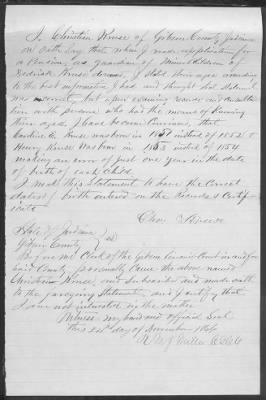 I, Christian Kruse of Gibson County Indiana
on oath say that when I made application for
a Pension, as guardian of minor children of
Kruse decd, I stated their ages according
to the best information I had and thought that statement
was correct, but after examining records and consultation
with persons who has the means of knowing
their ages, I have become convinced that
Caroline C. Kruse was born in 1851 insted of 1852 &
Henry Kruse was born in 1855 insted of 1854
making an error of just one year in the date
of birth of each child.
I make this Statement to have the Correct
dates of birth entered on the Records & Certificate
Chris Kruse
State of Indiana
Gibson County } ss
Before me Clerk of the Gibson Circuit Court in and for
said County personally came the above named
Christian Kruse, and subscribed and made oath
to the foregoing Statement, and I certify that
I am not interested in the matter
Witness my hand and official Seal
this day of December 1866
Clerk